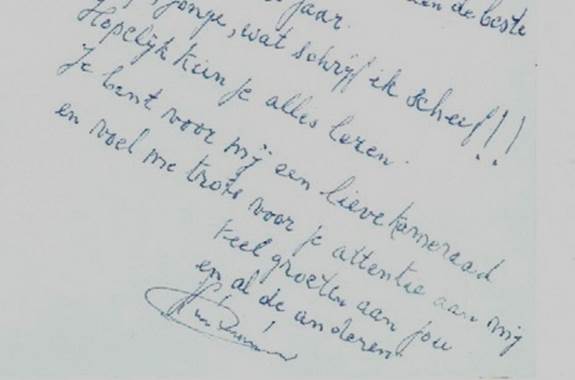 en de beste
jaar.
jonge, wat schrijf ik scheef!!
Hopelijk kun je alles lezen.
Je bent voor mij een lieve kameraad
en voel me trots voor je attentie aan mij
Veel groeten aan jou
en al de anderen